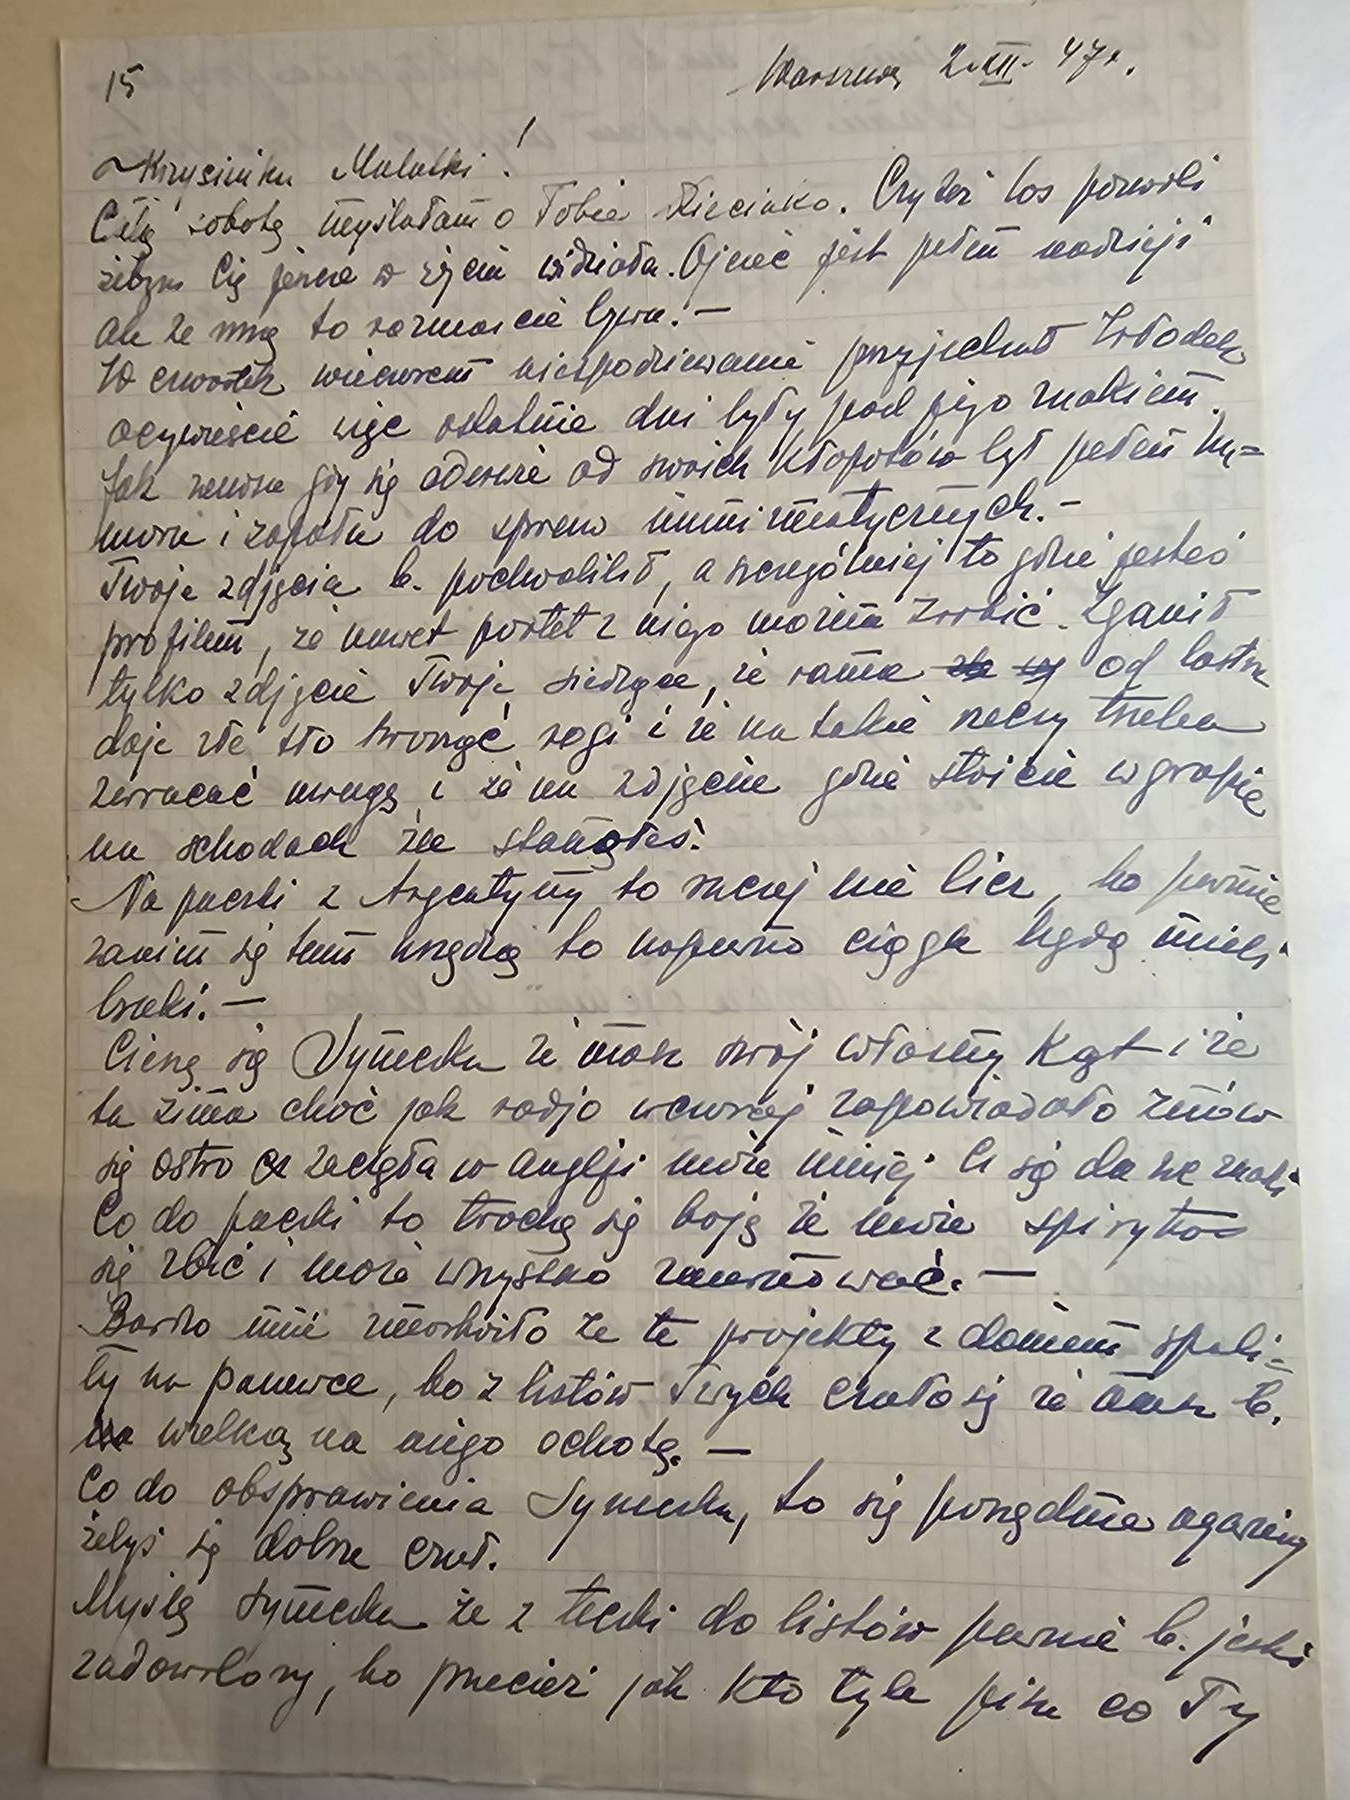 15
Warszawa 2.XII. 47r.
Krzysiuniu Malutki!
Całą sobotę myślałam o Tobie Dziecinko. Czyżeż los pozwoli
żebym Cię jeszcze w życiu widziała. Ojciec jest pełen nadzieji
ale ze mną to rozmaicie bywa. —
W czwartek wieczorem niespodziewanie przyjechał Włodek
oczywiście więc ostatnie dni były pod jego znakiem.
Jak zawsze gdy się oderwie od swoich kłopotów był pełen hu=
moru i zapału do spraw numizmatycznych. —
Twoje zdjęcia b. pochwalił, a szczególniej to gdzie jesteś
profilem, że nawet portet z niego można zrobić. Zganił
tylko zdjęcie Twoje siedzące, że rama od lustra
daje złe tło rogi i że na takie rzeczy trzeba
zwracać uwagę i że na zdjęcie gdzie stoicie w grupie
na schodach źle stanąłeś.
Na paczki z Argentyny to raczej nie licz, bo pewnie
zanim się tam urządzą to napewno ciągle będą mieli
braki. —
Cieszę się Syneczku że masz swój własny kąt i że
ta zima choć jak radjo wczoraj zapowiadało znów
się ostro zaczęła w Anglji może mniej Ci się da we znaki
Co do paczki to trochę się boję że może spirytus
się zbić i może wszystko zmarnować. —
Bardzo mnie zmartwiło że te projekty z domem spali=
ły na panewce, bo z listów Twych czuło się że masz b.
wielką na niego ochotę. —
Co do obsprawienia Syneczku, to się porządnie ogarnij
żebyś się dobrze czuł.
Myślę Syneczku że z teczki do listów pewnie b. jesteś
zadowolony, bo przecież jak kto tyle pisze co Ty